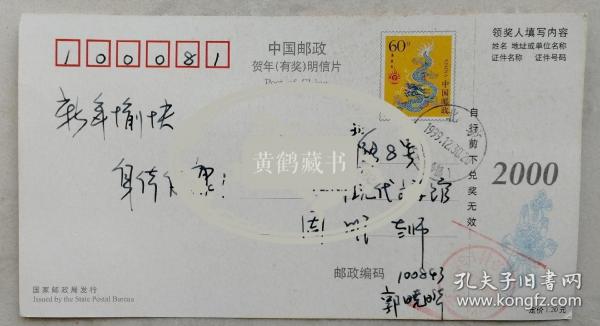 100081
中国邮政
贺年(有奖)明信片
60分
中国邮政
领奖人填写内容
姓名 地址或单位名称
证件名称 证件号码
自行剪下兑奖无效
2000
新年愉快
身体健康!
1999.12.30
黄鹤藏书
现代文学馆
周明 老师
邮政编码 100843
郭晓晔
国家邮政局发行
Issued by the State Postal Bureau
定价1.20元
孔夫子旧书网
www.kongfz.com